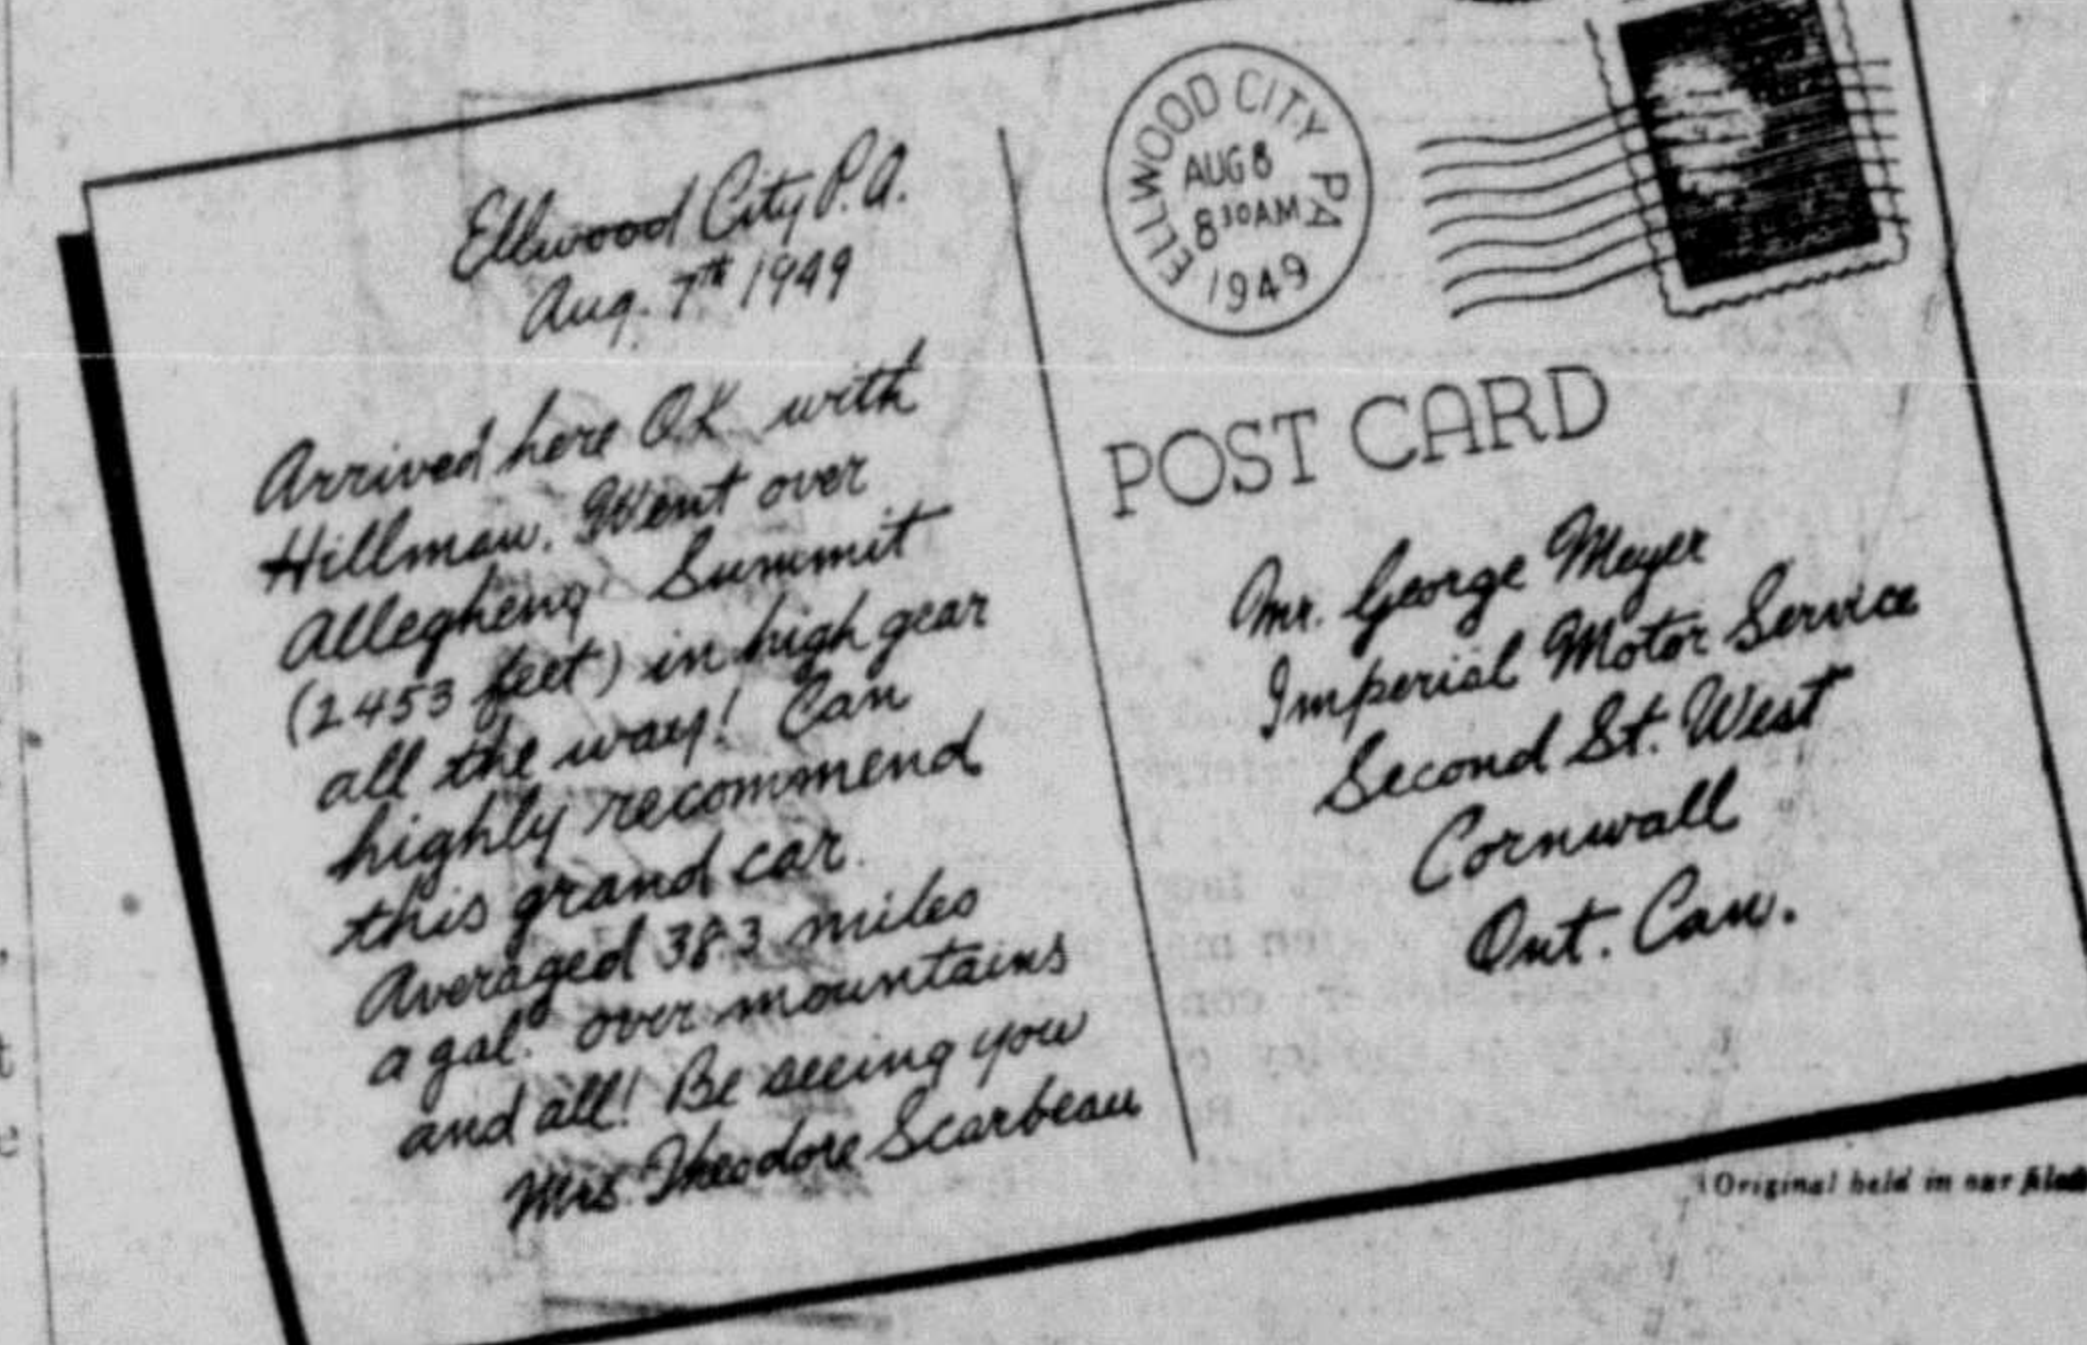 Ellwood City P.A.
Aug. 7th 1949
Arrived here OK with
Hillman. Went over
Allegheny Summit
(2453 feet) in high gear
all the way! Can
highly recommend
this grand car.
Averaged 38.3 miles
a gal. over mountains
and all! Be seeing you
Mrs. Theodore Scarbeau
ELLWOOD CITY PA
AUG 8
8 30 AM
1949
POST CARD
Mr. George Meyer
Imperial Motor Service
Second St. West
Cornwall
Ont. Can.
(Original held in our files